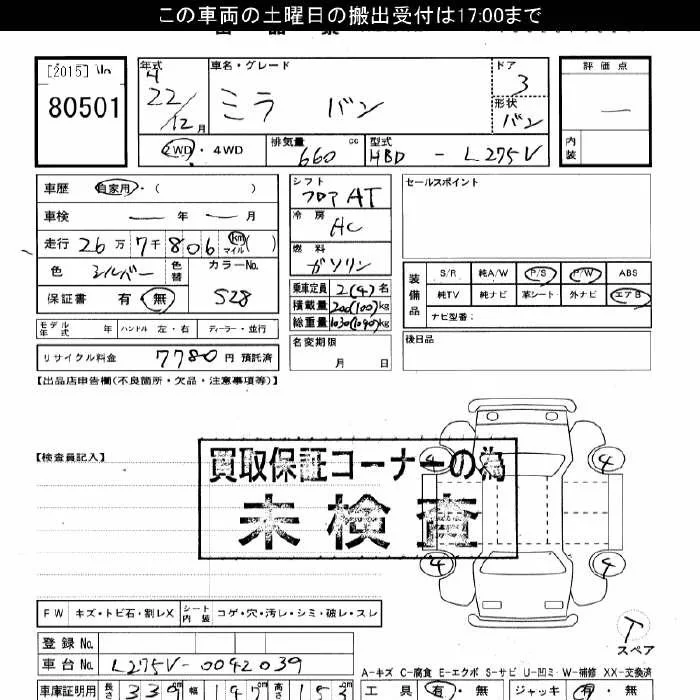 この車両の土曜日の搬出受付は17:00まで
[2015]
80501
年式 車名・グレード ドア 評価点
22/12月 ミラ バン 3
形状 バン
2WD・4WD 排気量 660 cc 型式 HBD - L275V
内装
車歴 自家用・( )
車検 ― 年 ― 月
走行 26万7千806 km マイル ( )
色 シルバー 色替 カラーNo. S28
保証書 有・無
モデル年式 年 ハンドル 左・右 ディーラー・並行
リサイクル料金 7780 円 預託済
シフト フロア AT
冷房 AC
燃料 ガソリン
乗車定員 2(4)名
積載量 200(100)kg
総重量 1030(1090)kg
名変期限
月 日
セールスポイント
装備品 S/R 純A/W P/S P/W ABS
純TV 純ナビ 革シート 外ナビ エアB
ナビ型番:
後日品
【出品店申告欄(不良箇所・欠品・注意事項等)】
【検査員記入】
買取保証コーナーの為
未検査
4 4
4 4
FW キズ・トビ石・割レX シート内装 コゲ・穴・汚レ・シミ・破レ・スレ
T
スペア
登録No.
車台No. L275V-0042039
A-キズ C-腐食 E-エクボ S-サビ U-凹ミ W-補修 XX-交換済
車庫証明用 長さ 339 cm 幅 147 cm 高さ 153 cm
工具 有・無 ジャッキ 有・無